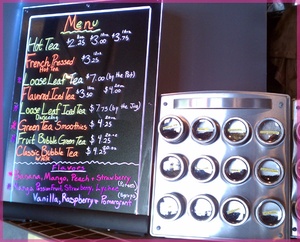 Menu
Hot Tea $2.25 $3.00 $3.75
French Pressed $3.25
Hot Tea
Loose Leaf Tea $7.00 (by the Pot)
Flavored Iced Tea $3.50 $4.00
Loose Leaf Iced Tea $7.75 (by the Jug)
Green Tea Smoothies $4.25
Fruit Bubble Green Tea $4.25
Classic Bubble Tea $4.25
Flavors
Banana, Mango, Peach & Strawberry
Passionfruit, Strawberry, Lychee
Vanilla, Raspberry